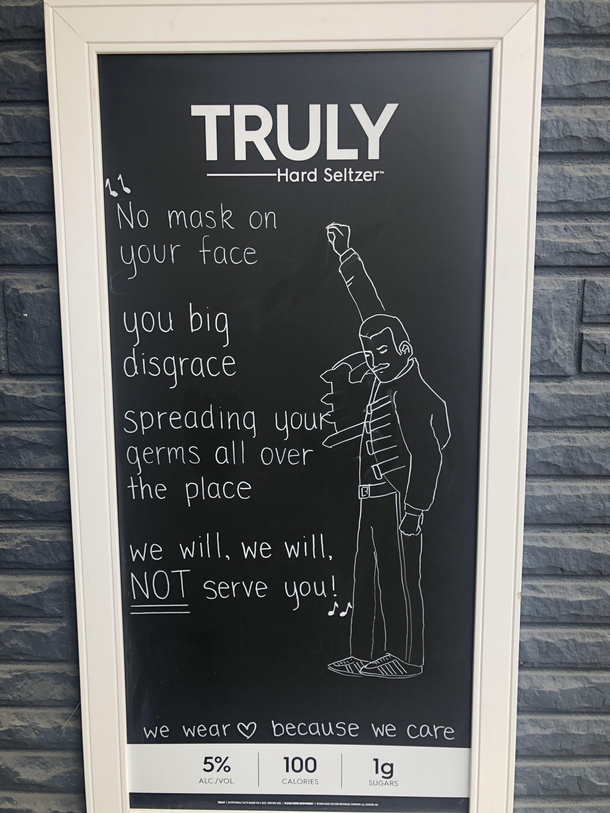 TRULY
Hard Seltzer™
No mask on
your face
you big
disgrace
spreading your
germs all over
the place
we will, we will,
NOT serve you!
we wear ♡ because we care
5% 100 1g
ALC./VOL. CALORIES SUGARS